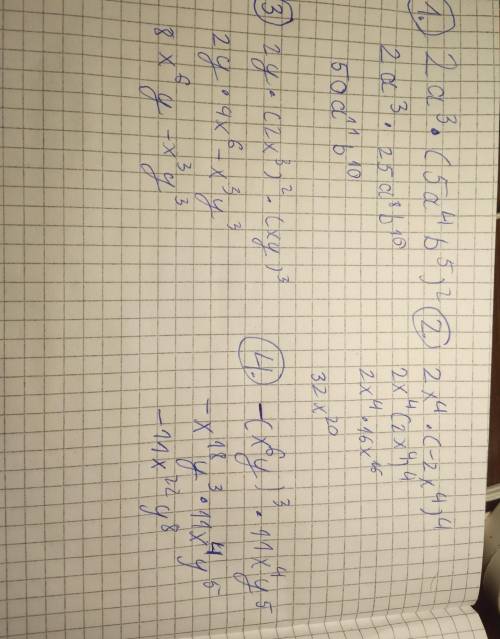 1. 2a³ · (5a⁴b⁵)²
2a³ · 25a⁸b¹⁰
50a¹¹b¹⁰
2. 2x⁴ · (-2x⁴)⁴
2x⁴(2x⁴)⁴
2x⁴ · 16x¹⁶
32x²⁰
3 2y · (2x³)² · (xy)³
2y · 4x⁶ - x³y³
8x⁶y - x³y³
4. -(x⁶y)³ · 11x⁴y⁵
-x¹⁸y³ · 11x⁴y⁵
-11x²²y⁸